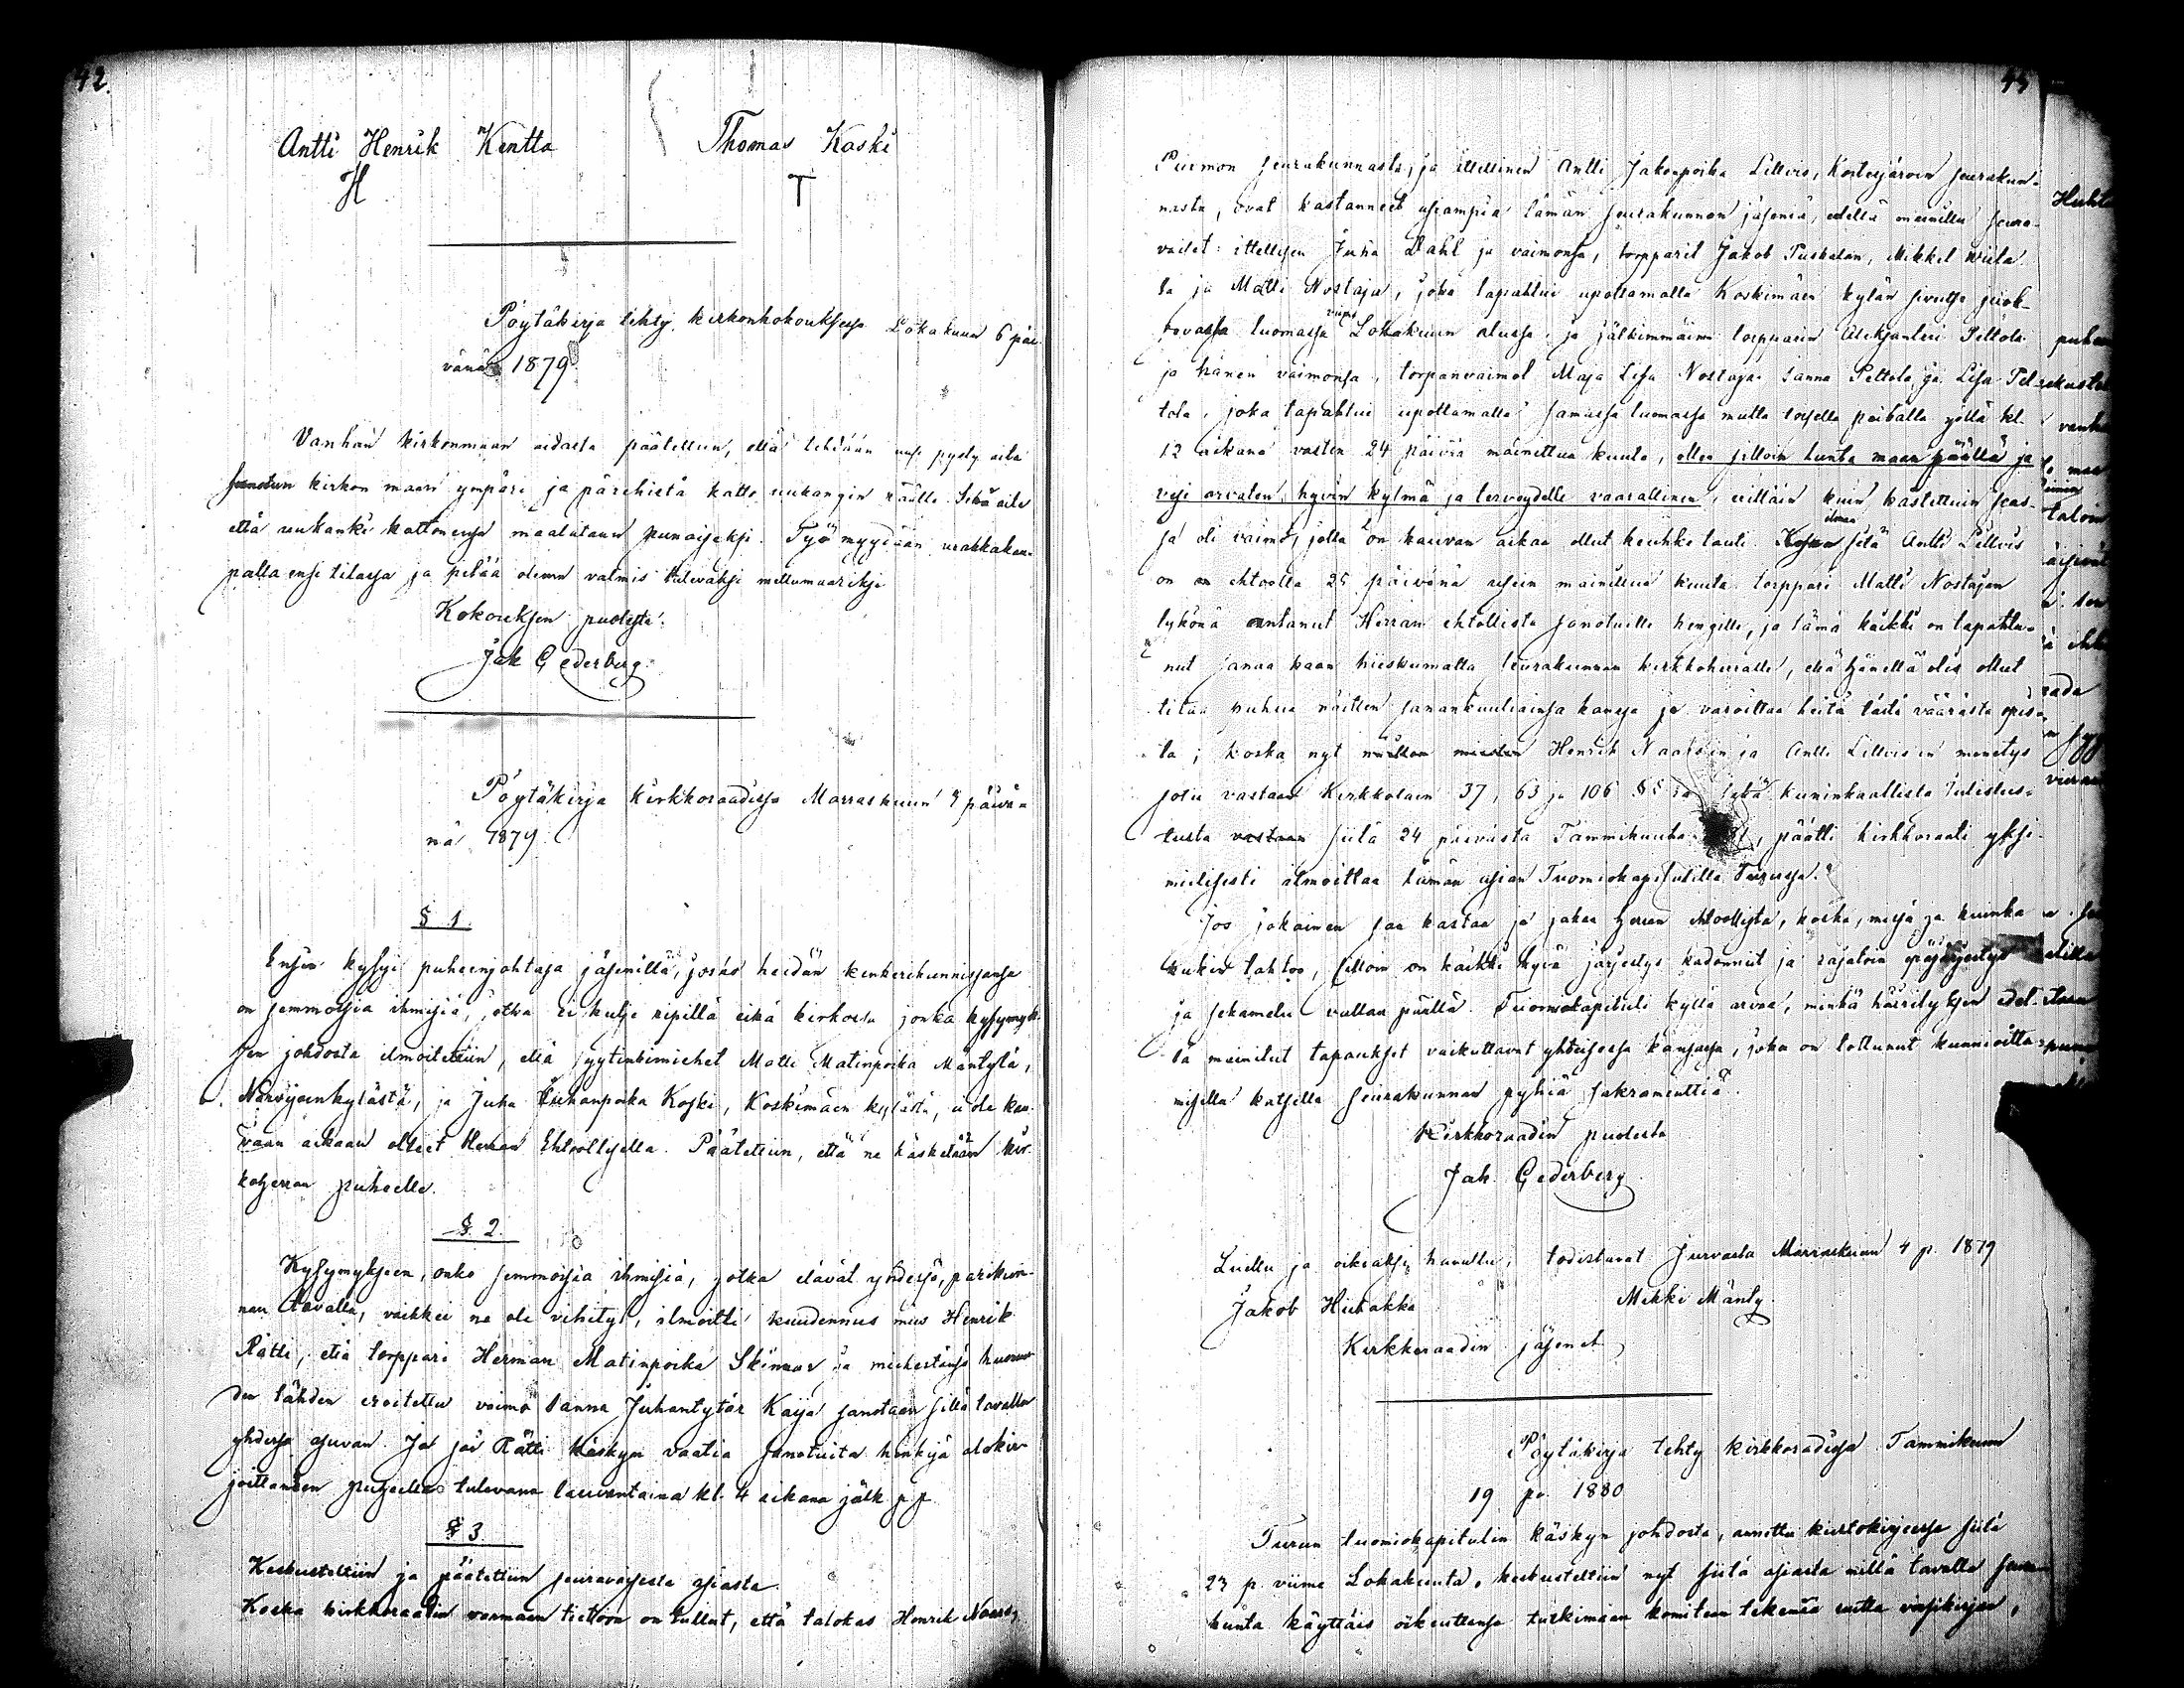 42.
Antti Henrik Kentta Thomas Kaski
H T
Pöytäkirja tehty kirkonkokouksessa Lokakuun 6 päi-
vänä 1879
Vanhan kirkonmaan aidasta päätettiin, että tehdään uusi pysty aita
sanotun kirkon maan ympäri ja pärehistä katto uukangin päälle. Sekä aita
että uukanki kattonensa maalataan punaiseksi. Työ myydään urakkakau-
palla ensi tilassa ja pitää oleman valmis tulevaksi mittumaariksi
Kokouksen puolesta:
Jak Cederberg
Pöytäkirja kirkkoraadissa Marraskuun 4 päivä-
nä 1879.
§ 1.
Ensin kysyi puheenjohtaja jäsenillä, josko heidän kinkerikunnissansa
on semmoisia ihmisiä, jotka ei kulje ripillä eikä kirkossa jonka kysymyk-
sen johdosta ilmoitettiin, että syytinkimiehet Matti Matinpoika Mäntylä,
Närvijoenkylästä, ja Juha Juhanpoika Koski, Koskimäen kylästä, ei ole kau-
van aikaan olleet Herran Ehtoollisella. Päätettiin, että ne käsketään kir-
koherran puheelle.
§ 2.
Kysymykseen, onko semmoisia ihmisiä, jotka elävät yhdessä, pariskun-
nan tavalla, vaikkei ne ole vihityt, ilmoitti kuudennus mies Henrik
Rätti, että torppari Herman Matinpoika Skinnar ja miehestänsä huoru-
den tähden eroitettu vaimo Sanna Juhantytär Kaija sanotaan sillä tavalla
yhdessä asuvan. Ja sai Rätti käskyn vaatia sanotuita henkijä allekir-
joittaneen puheella tulevana lauvantaina kl. 4 aikana jälk. p.p.
§ 3.
Keskusteltiin ja päätettiin seuravaisesta asiasta.
Koska kirkkoraadin varmaan tietoon on tullut, että talokas Henrik
Purmon seurakunnasta, ja itellinen Antti Jakonpoika Lillvis, Kortesjärven seurakun-
nasta, ovat kastanneet useampia tämän seurakunnan jäseniä, edellä mainittu seura-
vaiset: itellisen Juha Dahl ja vaimonsa, torpparit Jakob Puskalan, Mikkel Wiita-
la ja Matti Nostaja, joka tapahtui upottamalla Koskimäen kylän sivutse juok-
sevassa luomassa viime Lokakuun alussa, ja jälkimmäinen torpparin Aleksanteri Peltola
ja hänen vaimonsa, torpanvaimot Maja Lisa Nostaja Sanna Peltola ja Lisa Pel-
tola, joka tapahtui upottamalla samassa luomassa mutta toisella paikalla yöllä kl.
12 aikana vasten 24 päivää mainittua kuuta, ollen silloin lunta maan päällä ja
vesi arvaten hyvin kylmä ja terveydelle vaarallinen, erittäin kuin kastettuin seas-
sa oli vaimo, jolla on kauvan aikaa ollut keuhko tauti. sitä Antti Lillvis
on ehtoolla 25 päivänä usein mainittua kuuta torppari Matti Nostajan
tykönä antanut Herran ehtollista sanotuille hengille, ja tämä kaikki on tapahtu-
nut sanaa kaan hiiskumatta seurakunnan kirkkoherralle, että hänellä olis ollut
tilaa puhua näitten sanankuuliainsa kanssa ja varoittaa heitä tästä väärästä opis-
ta; koska nyt Henrik ja Antti Lillvis'in menetys
sotii vastaan Kirkkolain 37, 63 ja 106 §§ ja kuninkaallista julistus-
tusta vastaan siitä 24 päivästä Tammikuuta, päätti kirkkoraati yksi-
mielisesti ilmoittaa tämän asian Tuomiokapitulilla Turussa.
Jos jokainen saa kastaa ja jakaa Herran ehtoollista, koska, missä ja kuinka
kukin tahtoo, silloin on kaikki hyvä järjestys kadonnut ja rajatoin epäjärjestys
ja sekamelu vallan päällä. Tuomiokapituli kyllä arvaa, minkä häirityksen edel-
lä mainitut tapaukset vaikuttavat yhteisessä kansassa, joka on tottunut kunnioitta-
misella katsella seurakunnan pyhiä sakramenttiä.
Kirkkoraadin puolesta
Jak. Cederberg
Luettu ja oikiaksi havattu, todistavat Jurvasta Marraskuun 4 p. 1879
Jakob Hiitakka Mikki Mänty.
Kirkkoraadin jäsenet
Pöytäkirja tehty kirkkoradissa Tammikuun
19 p. 1880
Turun tuomiokapitulin käskyn johdosta, annettu kiertokirjeessä siitä
23 p. viime Lokakuuta, keskusteltiin nyt siitä asiasta millä tavalla seura-
kunta käyttäis oikeuttansa tutkimaan komitean tekemää uutta virsikirjaa,